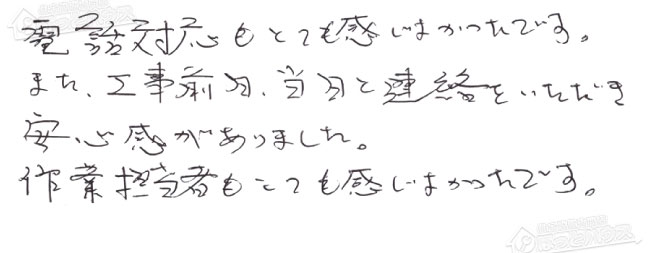 電話対応もとても感じよかったです。
また、工事前日、当日と連絡をいただき
安心感がありました。
作業担当者もとても感じよかったです。